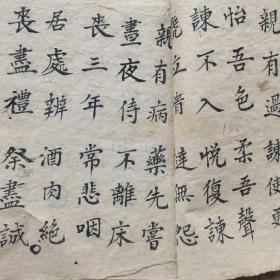 親有過諫使更
怡吾色柔吾聲
諫不入悅復諫
號泣隨達無怨
親有病藥先嘗
晝夜侍不離床
喪三年常悲咽
居處辨酒肉絕
喪盡禮祭盡誠。